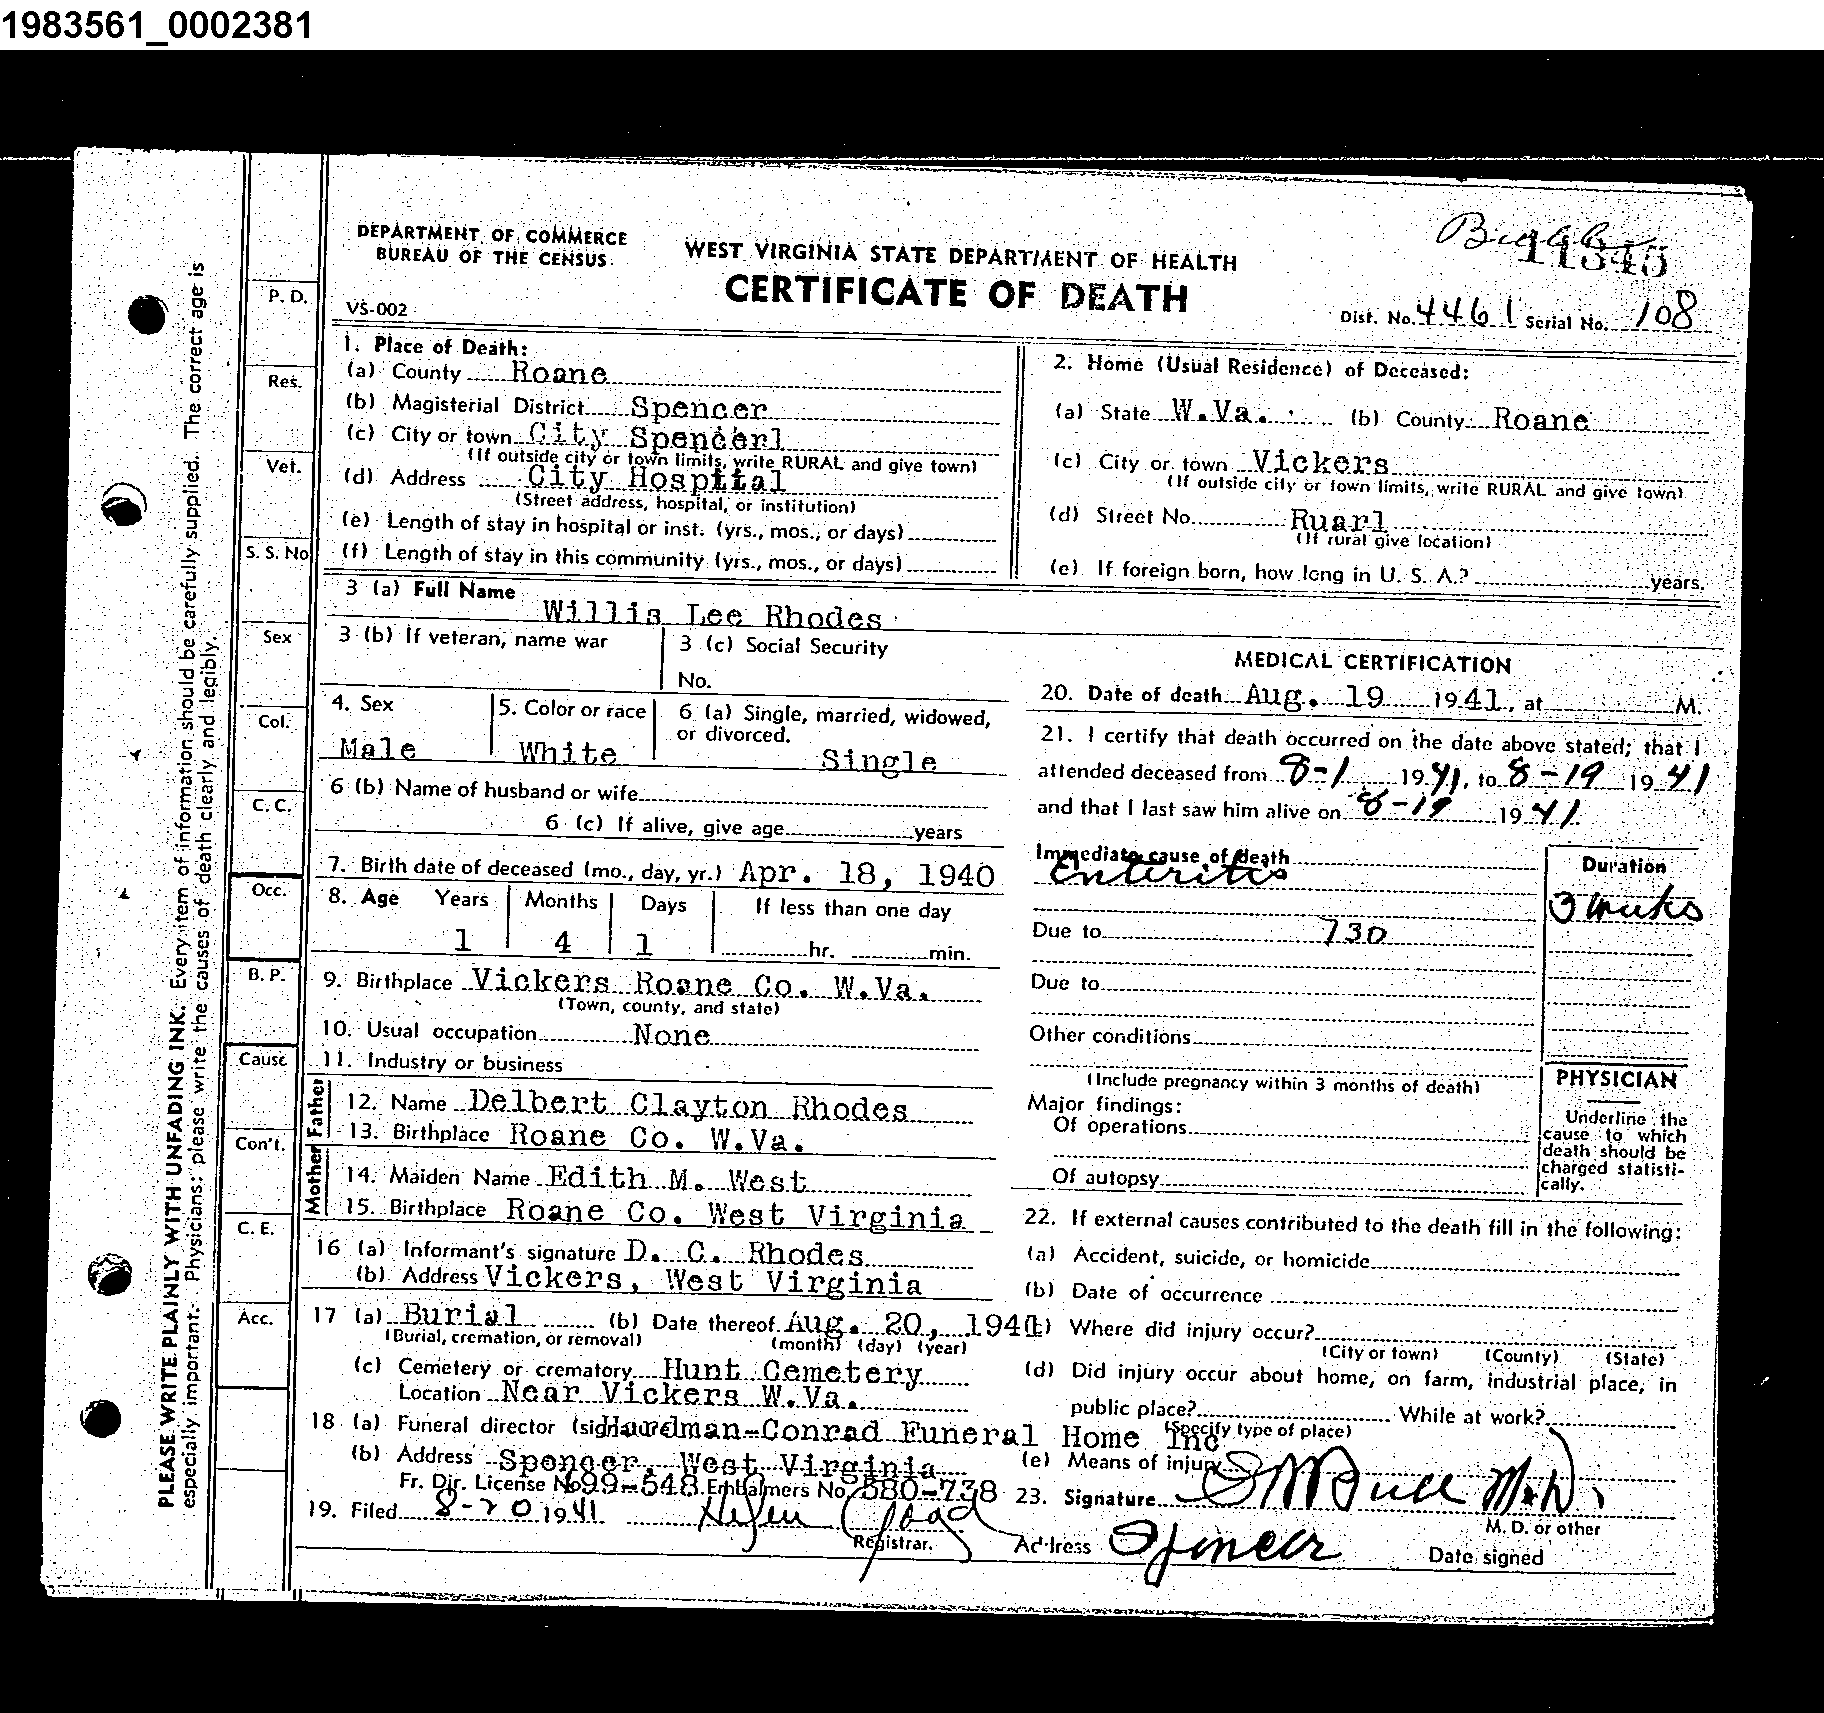 1983561_0002381
PLEASE WRITE PLAINLY WITH UNFADING INK. Every item of information should be carefully supplied. The correct age is
especially important. Physicians: please write the causes of death clearly and legibly.
P. D.
Res.
Vet.
S. S. No
Sex
Col.
C. C.
Occ.
B. P.
Cause
Con't.
C. E.
Acc.
DEPARTMENT OF COMMERCE
BUREAU OF THE CENSUS
VS-002
WEST VIRGINIA STATE DEPARTMENT OF HEALTH
CERTIFICATE OF DEATH
11345
Dist. No. 4461 Serial No. 108
1. Place of Death:
(a) County Roane
(b) Magisterial District Spencer
(c) City or town City Spencerl
(If outside city or town limits, write RURAL and give town)
(d) Address City Hospital
(Street address, hospital, or institution)
(e) Length of stay in hospital or inst. (yrs., mos., or days)
(f) Length of stay in this community (yrs., mos., or days)
2. Home (Usual Residence) of Deceased:
(a) State W.Va. (b) County Roane
(c) City or town Vickers
(If outside city or town limits, write RURAL and give town)
(d) Street No. Ruarl
(If rural give location)
(e) If foreign born, how long in U. S. A.? years.
3 (a) Full Name
Willis Lee Rhodes
3 (b) If veteran, name war
3 (c) Social Security
No.
4. Sex
Male
5. Color or race
White
6 (a) Single, married, widowed,
or divorced.
Single
6 (b) Name of husband or wife
6 (c) If alive, give age years
7. Birth date of deceased (mo., day, yr.) Apr. 18, 1940
8. Age Years Months Days If less than one day
1 4 1 hr. min.
9. Birthplace Vickers Roane Co. W.Va.
(Town, county, and state)
10. Usual occupation None
11. Industry or business
Father
12. Name Delbert Clayton Rhodes
13. Birthplace Roane Co. W.Va.
Mother
14. Maiden Name Edith M. West
15. Birthplace Roane Co. West Virginia
16 (a) Informant's signature D. C. Rhodes
(b) Address Vickers, West Virginia
17 (a) Burial (b) Date thereof Aug. 20, 1941
(Burial, cremation, or removal) (month) (day) (year)
(c) Cemetery or crematory Hunt Cemetery
Location Near Vickers W.Va.
18 (a) Funeral director (signature) Hardman-Conrad Funeral Home Inc
(b) Address Spencer, West Virginia
Fr. Dir. License No. 699-548 Embalmers No. 580-738
19. Filed 8-20 1941 Helen
Registrar.
MEDICAL CERTIFICATION
20. Date of death Aug. 19 1941, at M.
21. I certify that death occurred on the date above stated; that I
attended deceased from 8-1 1941, to 8-19 1941
and that I last saw him alive on 8-19 1941
Immediate cause of death
Enteritis
Duration
3 weeks
Due to 730
Due to
Other conditions
(Include pregnancy within 3 months of death)
Major findings:
Of operations
Of autopsy
PHYSICIAN
Underline the
cause to which
death should be
charged statisti-
cally.
22. If external causes contributed to the death fill in the following:
(a) Accident, suicide, or homicide
(b) Date of occurrence
(c) Where did injury occur?
(City or town) (County) (State)
(d) Did injury occur about home, on farm, industrial place, in
public place? While at work?
(Specify type of place)
(e) Means of injury
23. Signature M.D.
M. D. or other
Address Spencer Date signed